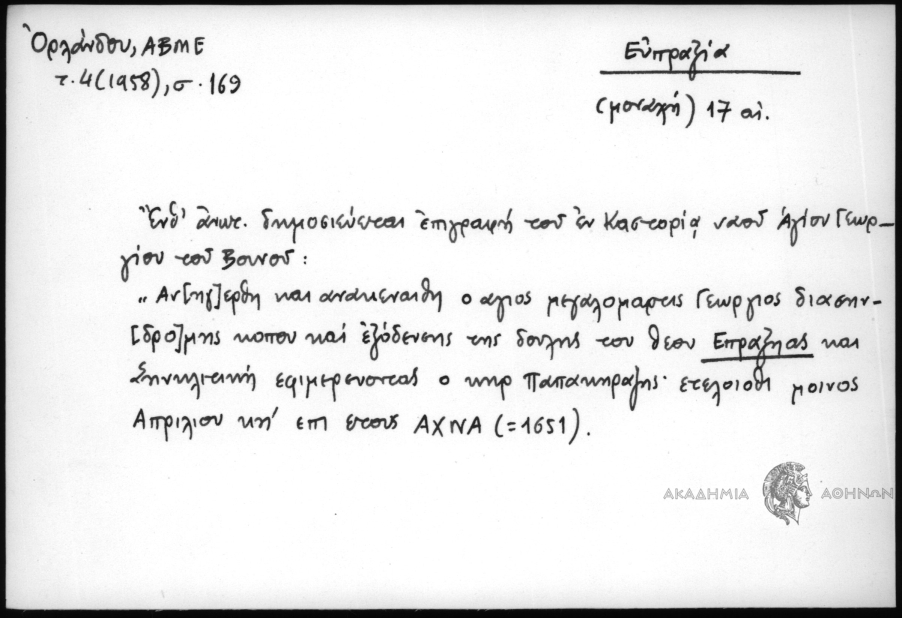 Ὀρλάνδου, ΑΒΜΕ
τ. 4 (1958), σ. 169
Εὐπραξία
(μοναχή) 17 αἰ.
Ἐνθ' ἀνωτ. δημοσιεύεται ἐπιγραφή τοῦ ἐν Καστορίᾳ ναοῦ Ἁγίου Γεωρ-
γίου τοῦ Βουνοῦ:
„Αν[ηγ]ερθη και ανακεναιθη ο αγιος μεγαλομαρτις Γεωργιος διασην-
[δρο]μης κοπου καί ἐξόδευσης της δουλης του θεου Επραξηας και
Σηνκλιτική εφιμερευοντας ο κηρ Παπακηραζης· ετελοιοθι μοινος
Απριλιου κη' επι ετους ΑΧΝΑ (=1651).
ΑΚΑΔΗΜΙΑ ΑΘΗΝΩΝ